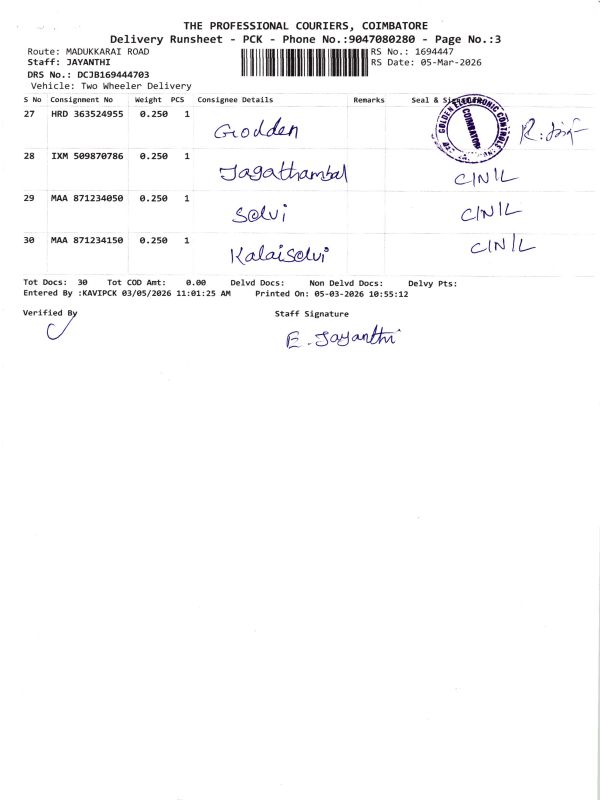 THE PROFESSIONAL COURIERS, COIMBATORE
Delivery Runsheet - PCK - Phone No.:9047080280 - Page No.:3
Route: MADUKKARAI ROAD RS No.: 1694447
Staff: JAYANTHI RS Date: 05-Mar-2026
DRS No.: DCJB169444703
Vehicle: Two Wheeler Delivery
S No Consignment No Weight PCS Consignee Details Remarks Seal &
27 HRD 363524955 0.250 1 Godden
GOLDEN ELECTRONIC CONTROLS
COIMBATORE
28 IXM 509870786 0.250 1 Jagathambal C/N/L
29 MAA 871234050 0.250 1 Selvi C/N/L
30 MAA 871234150 0.250 1 Kalaiselvi C/N/L
Tot Docs: 30 Tot COD Amt: 0.00 Delvd Docs: Non Delvd Docs: Delvy Pts:
Entered By :KAVIPCK 03/05/2026 11:01:25 AM Printed On: 05-03-2026 10:55:12
Verified By Staff Signature
E. Jayanthi